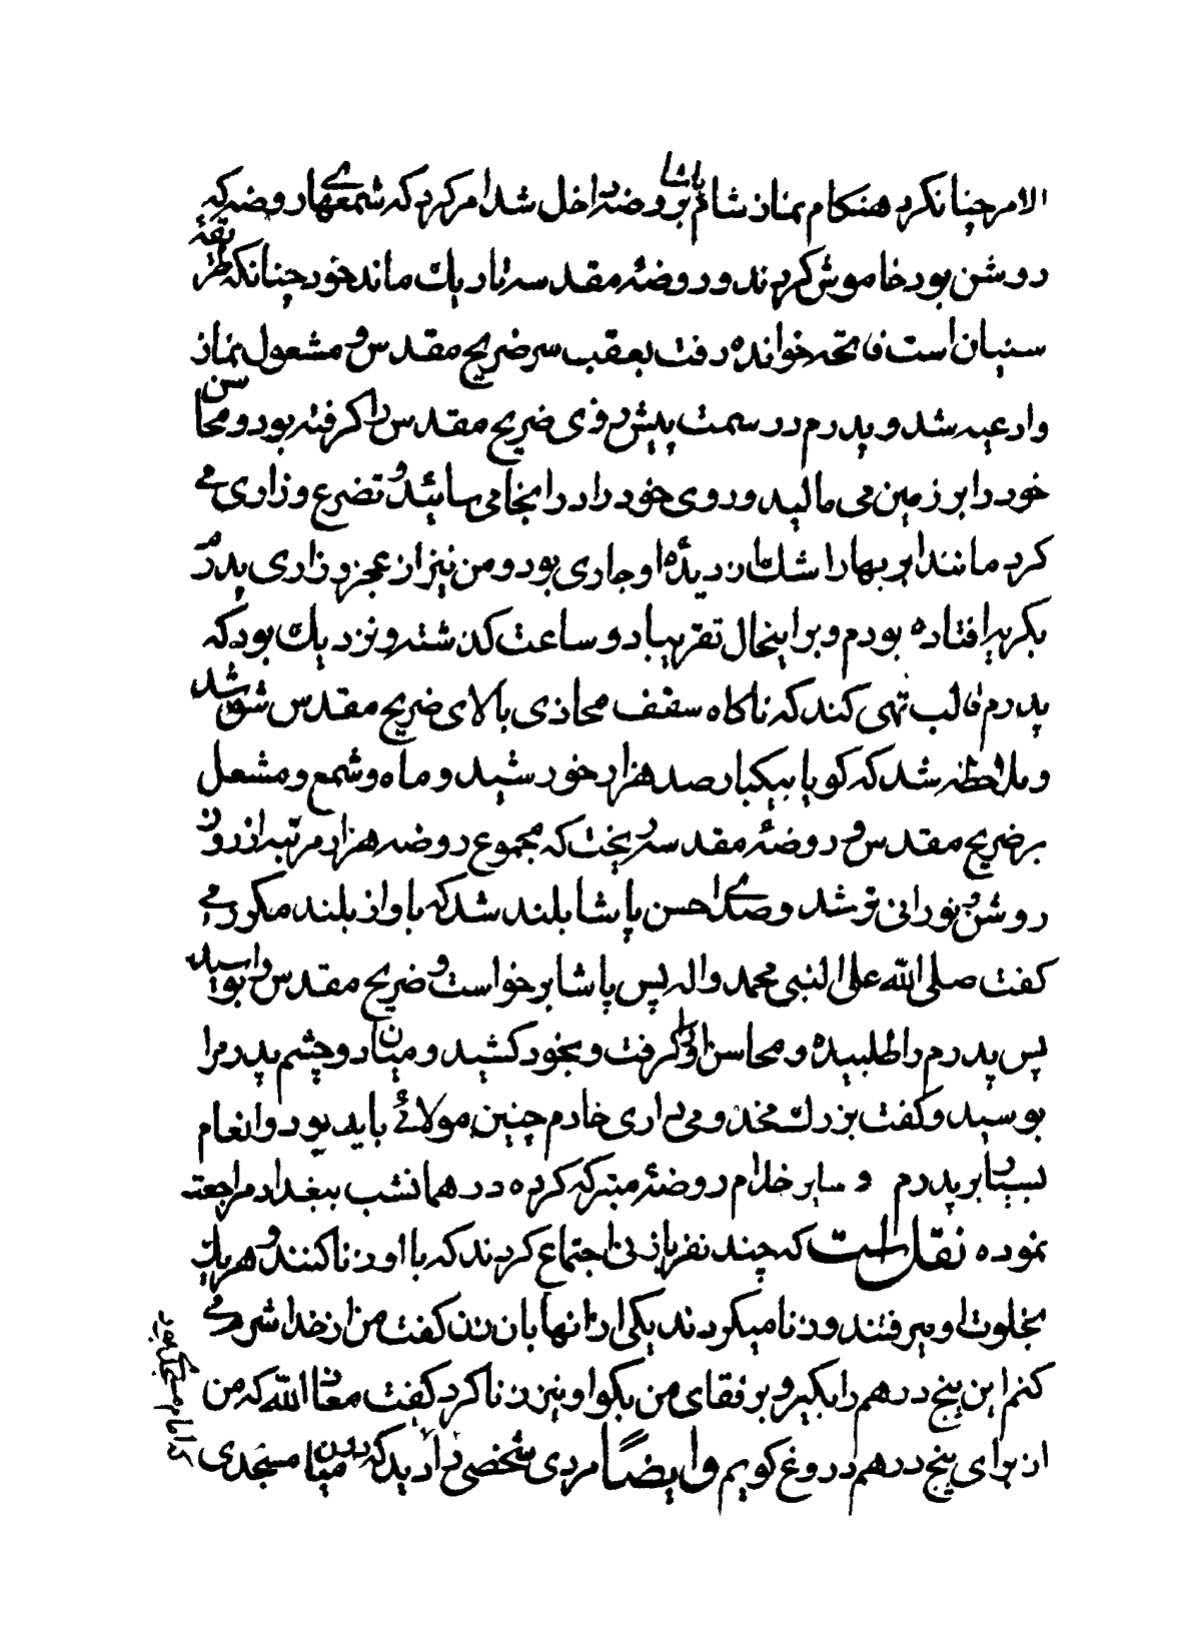 الامر چنان کرد هنکام نماز شام پاشا بروضه داخل شد امر کرد که شمعهای روضه که
روشن بود خاموش کردند و روضهٔ مقدسه تاریك ماند خود چنانکه طریقهٔ
سنیان است فاتحه خوانده رفت بعقب سر ضریح مقدس و مشغول نماز
وادعیه شد و پدرم در سمت پیش روی ضریح مقدس را کرفته بود و محاسن
خود را بر زمین می مالید و روی خود را در انجا می سائید و تضرع و زاری می
کرد مانند ابر بهار اشك از دیدهٔ او جاری بود و من نیز از عجز و زاری پدرم
بکریه افتاده بودم و براینحال تقریبا دو ساعت کذشته و نزدیك بود که
پدرم قالب تهی کند که ناکاه سقف محاذی بالای ضریح مقدس شق شد
و ملاحظه شد که کویا بیکبار صد هزار خورشید و ماه و شمع و مشعل
بر ضریح مقدس و روضهٔ مقدسه ریخت که مجموع روضه هزار مرتبه از روز
روشن و نورانی تر شد و صدای حسن پاشا بلند شد که باواز بلند مکرر می
کفت صلی الله علی النبی محمد واله پس پاشا برخواست و ضریح مقدس را بوسید
پس پدرم را طلبیده و محاسن او را کرفت و بخود کشید و میان دو چشم پدر مرا
بوسید و کفت بزرك مخدومی داری خادم چنین مولائی باید بود و انعام
بسیار بر پدرم و سایر خدام روضهٔ متبرکه کرده در همانشب ببغداد مراجعت
نموده نقل است که چند نفر بازنی اجتماع کردند که با او زنا کنند و هریك
بخلوت او میرفتند و زنا میکردند یکی از انها بان زن کفت من از خدا شرم می
کنم این پنج درهم را بکیر و بر فقای من بکو او نیز زنا کرد کفت معاذ الله که من
از برای پنج درهم دروغ کویم وایضًا مردی شخصی را دید که در میان مسجدی